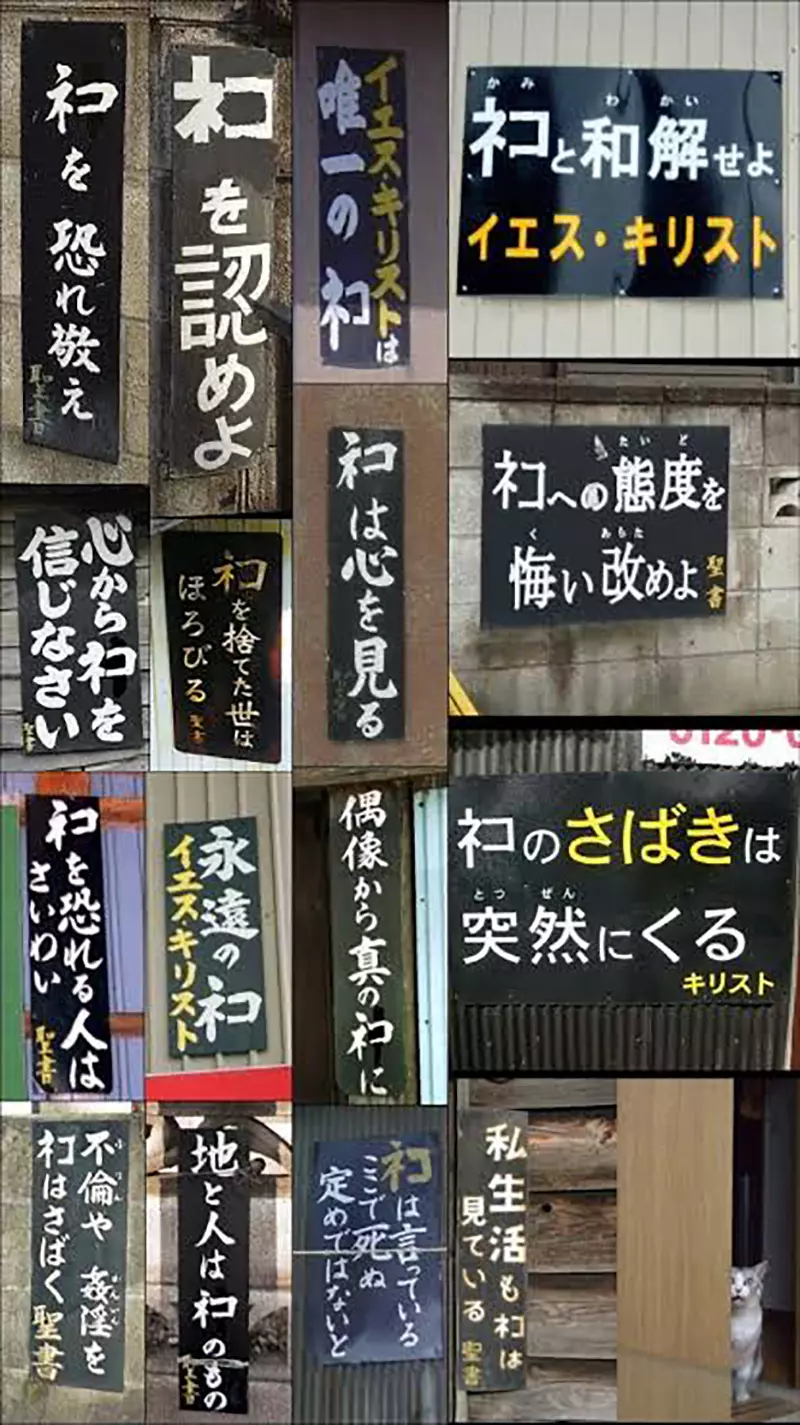 ネコを恐れ敬え
聖書
ネコを認めよ
イエス・キリストは
唯一のネコ
かみ わかい
ネコと和解せよ
イエス・キリスト
ネコは心を見る
たいど
ネコへの態度を
く あらた
悔い改めよ
聖書
心からネコを
信じなさい
聖書
ネコを捨てた世は
ほろびる 聖書
0120-0
ネコのさばきは
とつぜん
突然にくる
キリスト
ネコを恐れる人は
さいわい
聖書
永遠のネコ
イエスキリスト
偶像から真のネコに
不倫や姦淫を
ふりん かんいん
ネコはさばく 聖書
地と人はネコのもの
聖書
ネコは言っている
ここで死ぬ
定めではないと
私生活もネコは
見ている 聖書